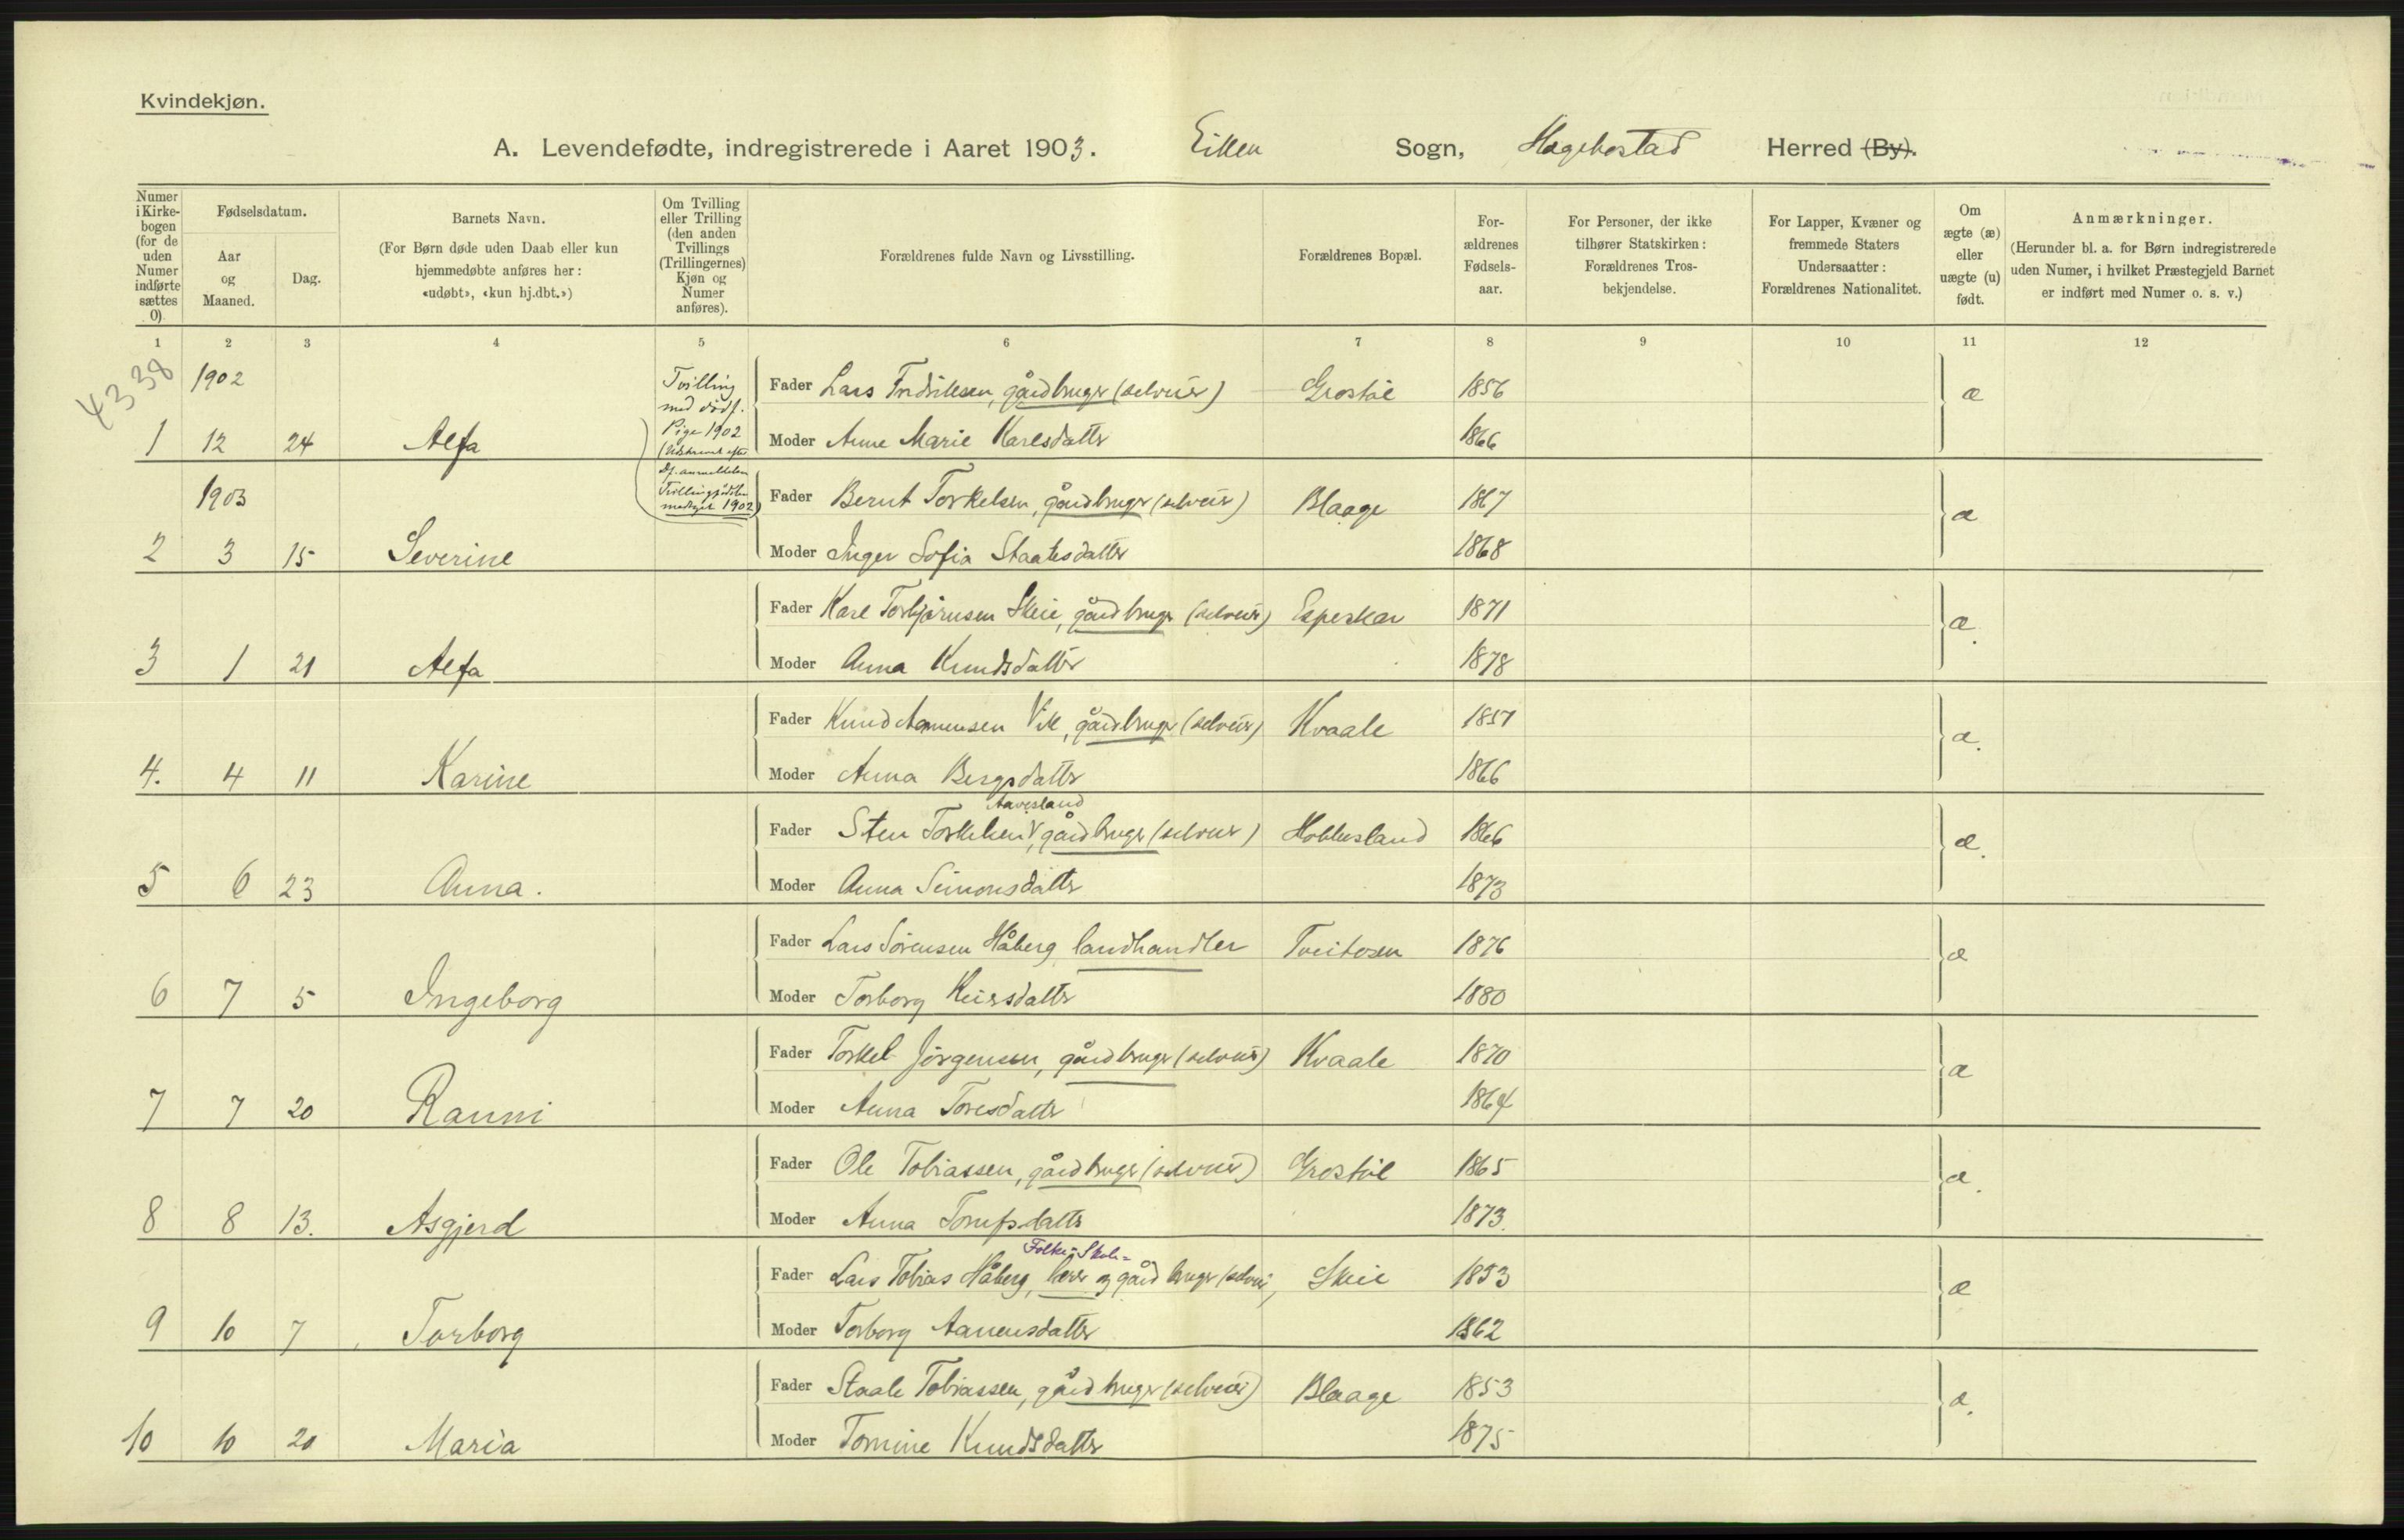 Kvindekjøn.
A. Levendefødte, indregistrerede i Aaret 1903. Eiken Sogn, Hægebostad Herred (By).
Numer i Kirkebogen (for de uden Numer indførte sættes 0).
Fødselsdatum.
Aar og Maaned.
Dag.
Barnets Navn.
(For Børn døde uden Daab eller kun hjemmedøbte anføres her: «udøbt», «kun hj.dbt.»)
Om Tvilling eller Trilling (den anden Tvillings (Trillingernes) Kjøn og Numer anføres).
Forældrenes fulde Navn og Livsstilling.
Forældrenes Bopæl.
Forældrenes Fødselsaar.
For Personer, der ikke tilhører Statskirken: Forældrenes Trosbekjendelse.
For Lapper, Kvæner og fremmede Staters Undersaatter: Forældrenes Nationalitet.
Om ægte (æ) eller uægte (u) født.
Anmærkninger.
(Herunder bl. a. for Børn indregistrerede uden Numer, i hvilket Præstegjeld Barnet er indført med Numer o. s. v.)
1 2 3 4 5 6 7 8 9 10 11 12
4338
1902 Tvilling med dødf. Pige 1902 Fader Lars Fredriksen, gårdbruger (selveier) Grostøl 1856 æ
1 12 24 Alfa Moder Anne Marie Karlsdatter 1866
1903 Fader Berut Torkelsen, gårdbruger (selveier) Blaage 1867 æ
2 3 15 Severine Moder Inger Sofia Staalesdatter 1868
Fader Karl Torbjørnsen Skeie, gårdbruger (selveier) Espeskar 1871 æ.
3 1 21 Alfa Moder Anna Knudsdatter 1878
Fader Knud Aanensen Vik, gårdbruger (selveier) Kvaale 1857 æ.
4. 4 11 Karine Moder Anna Bergsdatter 1866
Aavesland
Fader Sten Torkelsen, gårdbruger (selveier) Hobbesland 1866 æ.
5 6 23 Anna. Moder Anna Simonsdatter 1873
Fader Lars Sørensen Håberg landhandler Tveitosen 1876 æ
6 7 5 Ingeborg Moder Torborg 1880
Fader Torkel Jørgensen, gårdbruger (selveier) Kvaale 1870 æ
7 7 20 Ranni Moder Anna Toresdatter 1864
Fader Ole Tobiassen, gårdbruger (selveier) Grostøl 1865 æ.
8 8 13. Asgjerd Moder Anna 1873.
Folke-Skole-
Fader Lars Tobias Håberg, lærer og gårdbruger (selvei, Skeie 1853 æ
9 10 7 Torborg Moder Torborg Aanensdatter 1862
Fader Staale Tobiassen, gårdbruger (selveier) Blaage 1853 æ.
10 10 20 Maria Moder Tomine Knudsdatter 1875